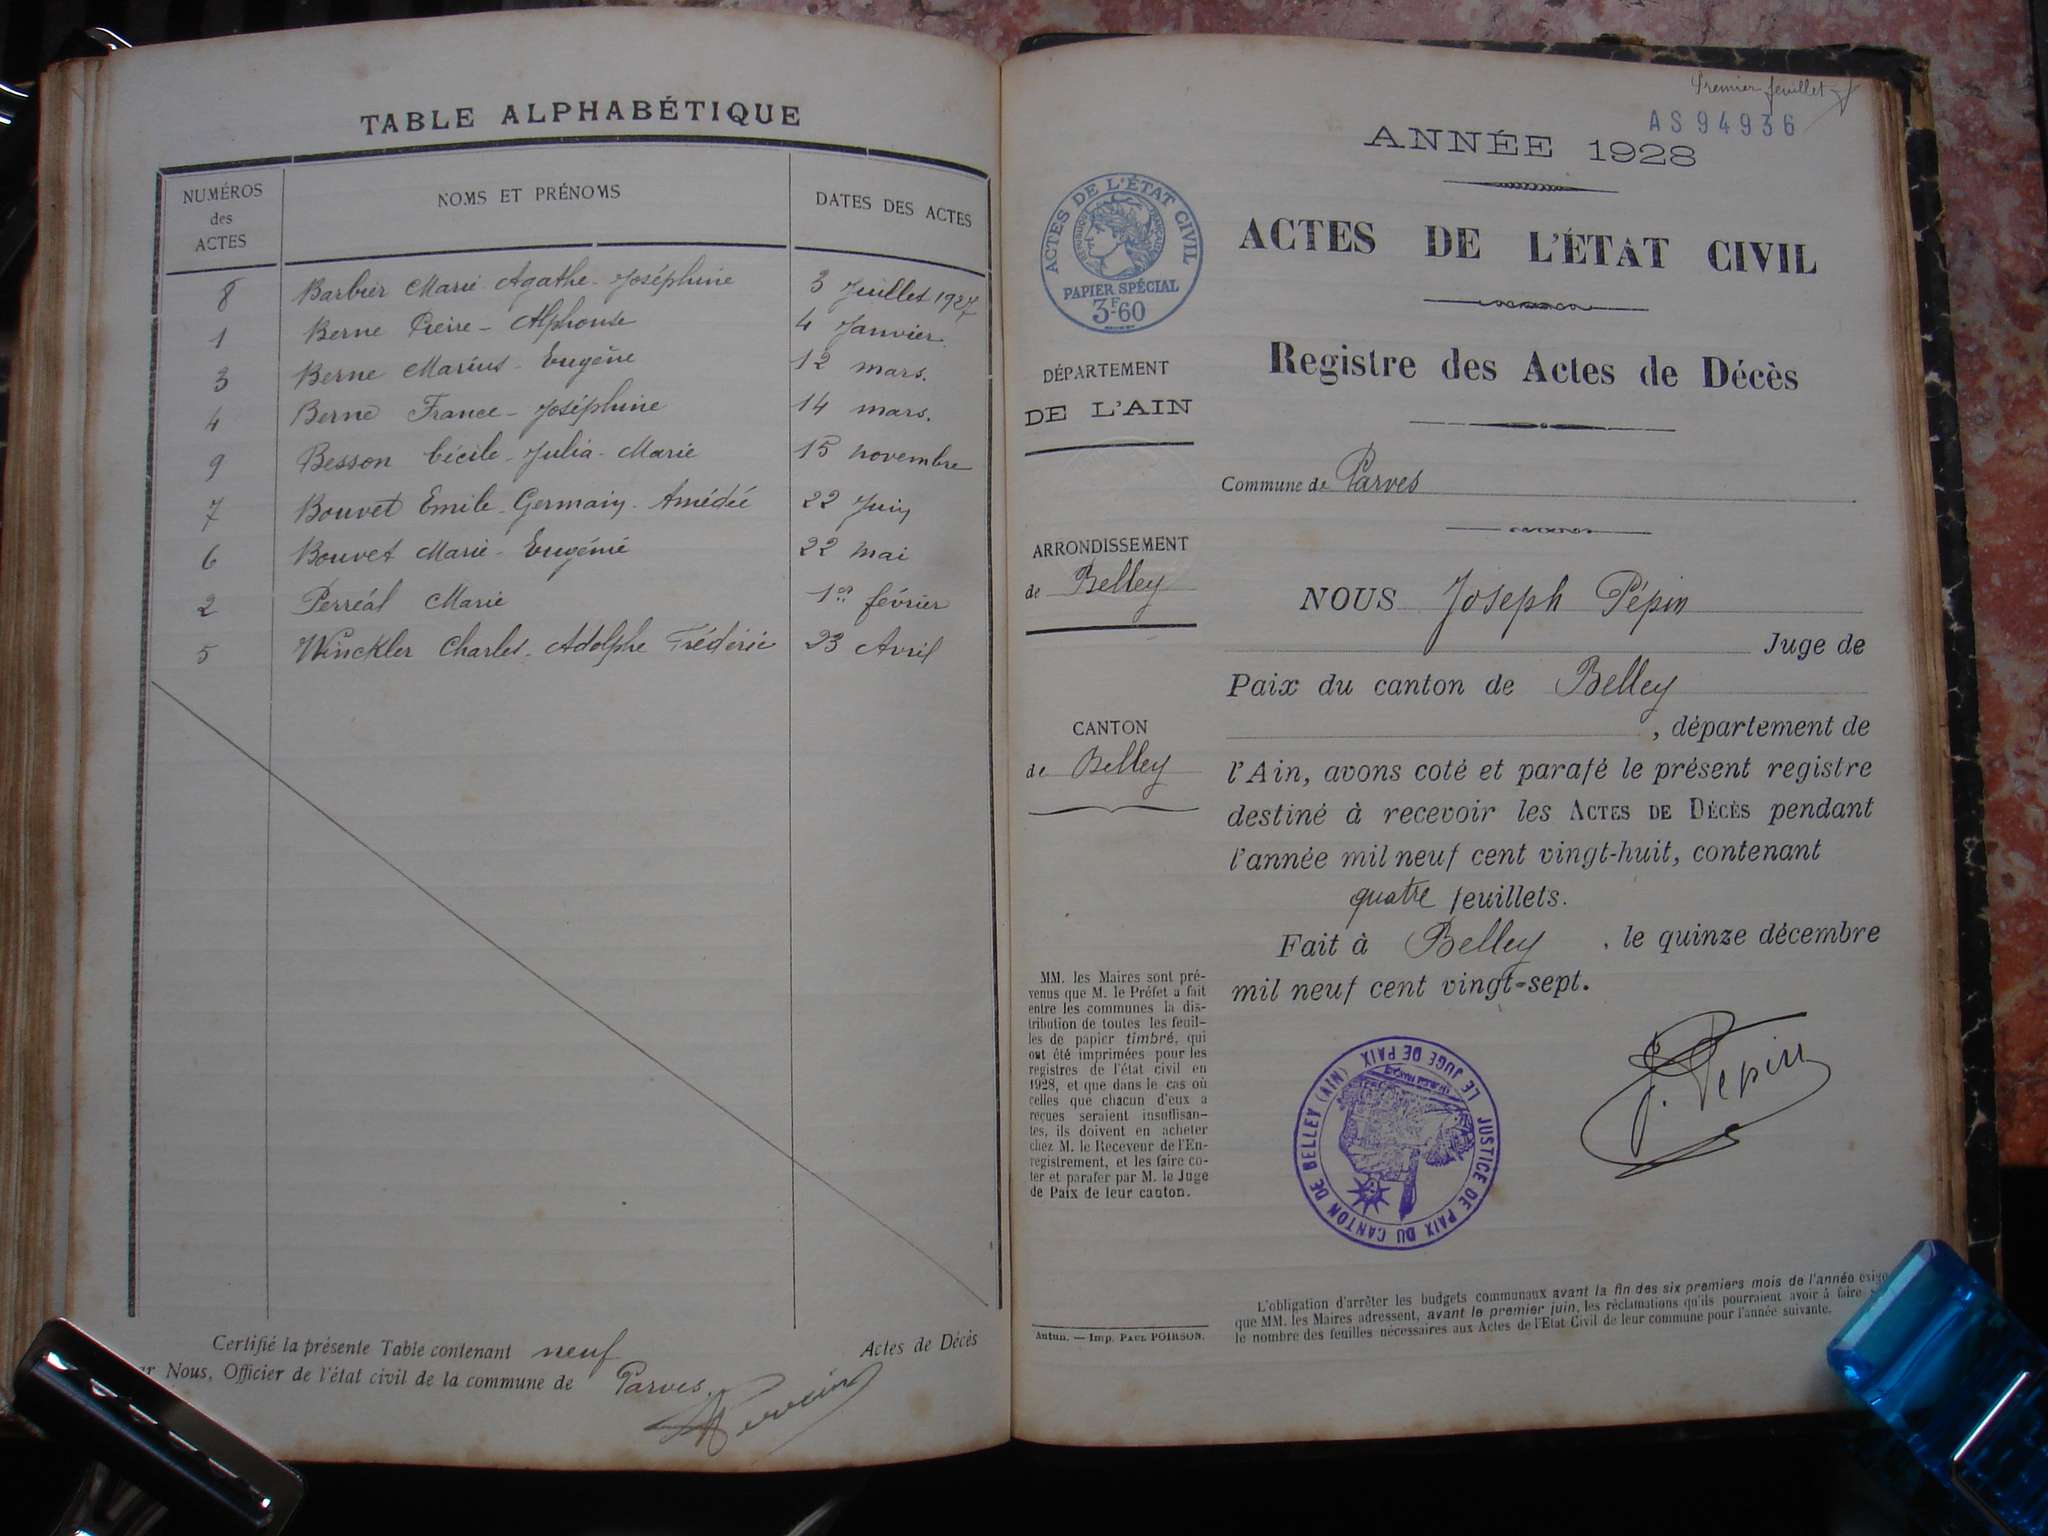 TABLE ALPHABÉTIQUE
NUMÉROS des ACTES
NOMS ET PRÉNOMS
DATES DES ACTES
8 Barbier Marie Agathe-Joséphine 3 Juillet 1927
1 Berne Pierre-Alphonse 4 Janvier
3 Berne Marius-Eugène 12 mars.
4 Berne France-Joséphine 14 mars.
9 Besson Cécile-Julia-Marie 15 novembre
7 Bouvet Emile-Germain-Amédée 22 Juin
6 Bouvet Marie-Eugénie 22 mai
2 Perréal Marie 1er février
5 Winckler Charles-Adolphe Frédéric 23 Avril
Certifié la présente Table contenant neuf Actes de Décès
Nous, Officier de l'état civil de la commune de Parves.
Premier feuillet
AS94936
ANNÉE 1928
ACTES DE L'ÉTAT CIVIL
RÉPUBLIQUE FRANÇAISE
PAPIER SPÉCIAL
3F60
ACTES DE L'ÉTAT CIVIL
Registre des Actes de Décès
DÉPARTEMENT
DE L'AIN
Commune de Parves
ARRONDISSEMENT
de Belley
CANTON
de Belley
NOUS Joseph Pépin
Juge de
Paix du canton de Belley
, département de
l'Ain, avons coté et parafé le présent registre
destiné à recevoir les ACTES DE DÉCÈS pendant
l'année mil neuf cent vingt-huit, contenant
quatre feuillets.
Fait à Belley, le quinze décembre
mil neuf cent vingt-sept.
MM. les Maires sont pré-
venus que M. le Préfet a fait
entre les communes la dis-
tribution de toutes les feuil-
les de papier timbré, qui
ont été imprimées pour les
registres de l'état civil en
1928, et que dans le cas où
celles que chacun d'eux a
reçues seraient insuffisan-
tes, ils doivent en acheter
chez M. le Receveur de l'En-
registrement, et les faire co-
ter et parafer par M. le Juge
de Paix de leur canton.
JUSTICE DE PAIX DU CANTON DE BELLEY (AIN) LE JUGE DE PAIX
J. Pépin
L'obligation d'arrêter les budgets communaux avant la fin des six premiers mois de l'année exige
que MM. les Maires adressent, avant le premier juin, les réclamations qu'ils pourraient avoir à faire
le nombre des feuilles nécessaires aux Actes de l'Etat Civil de leur commune pour l'année suivante.
Autun. — Imp. PAUL POIRSON.